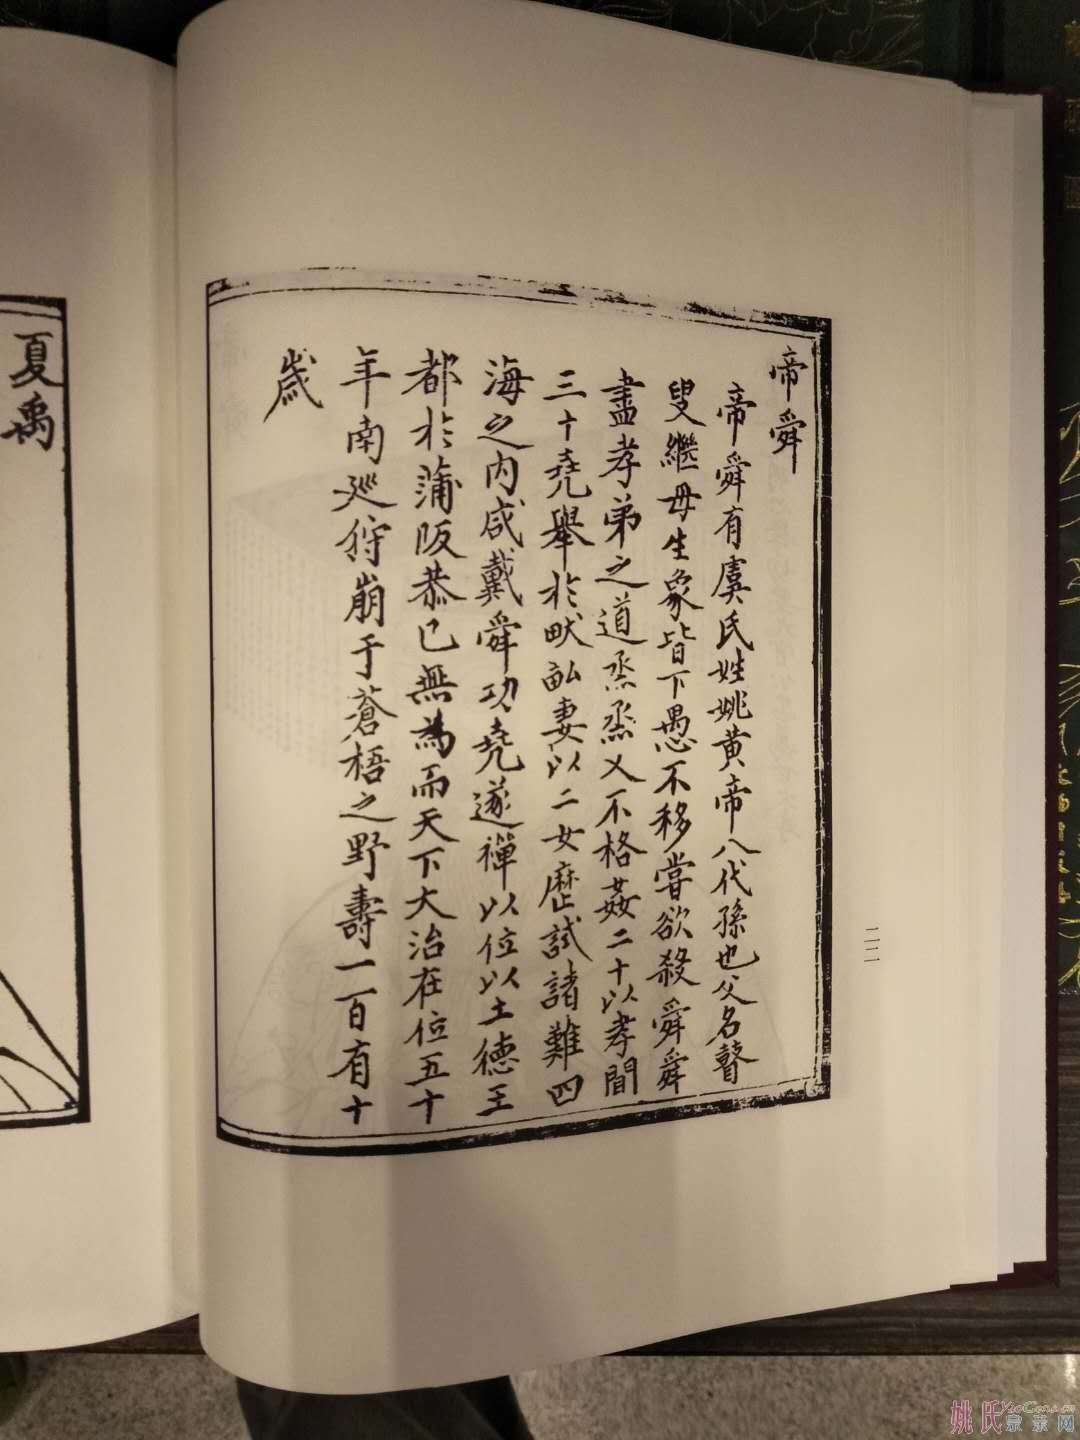 帝舜
帝舜有虞氏姓姚黃帝八代孫也父名瞽
叟繼母生象皆下愚不移嘗欲殺舜舜
盡孝弟之道烝烝乂不格姦二十以孝聞
三十堯舉於畎畝妻以二女歷試諸難四
海之內咸戴舜功堯遂禪以位以土德王
都於蒲阪恭己無為而天下大治在位五十
年南廵狩崩于蒼梧之野壽一百有十
歲
二二
夏禹
姚氏宗亲网
YaoCome.cn